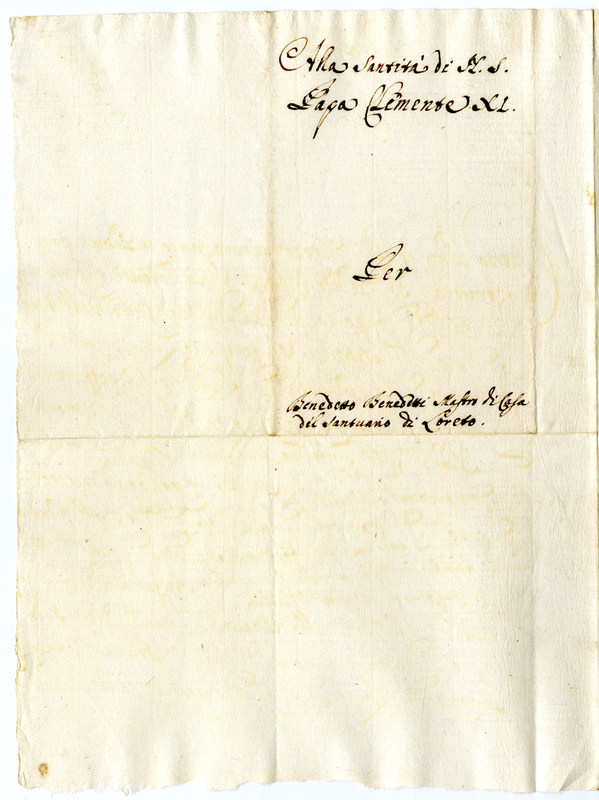 Alla Santità di N. S.
Papa Clemente XI.
Per
Benedetto Benedetti Mastro di Casa
del Santuario di Loreto.